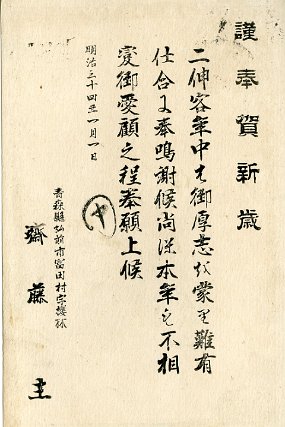 謹奉賀新歳
二伸客年中ハ御厚志ヲ蒙リ難有
仕合ニ奉鳴謝候尚深本年モ不相
変御愛顧之程奉願上候
明治三十四年一月一日
十
青森縣弘前市富田村字
齋藤 主